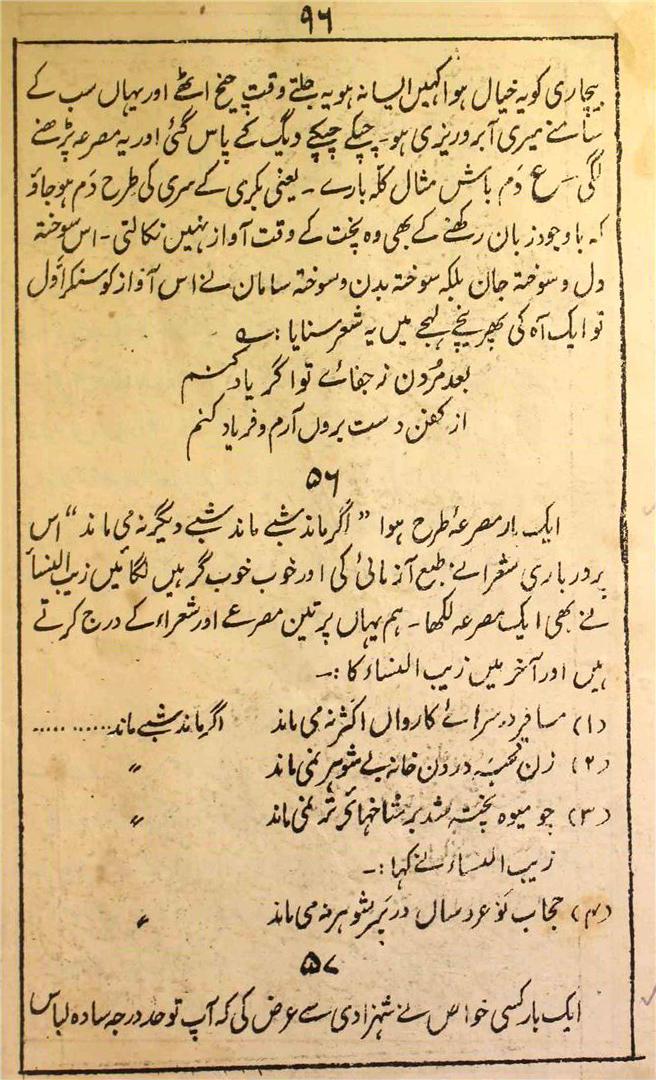 ۹۶
بیچاری کو یہ خیال ہوا کہیں ایسا نہ ہو یہ جلتے وقت چیخ اٹھے اور یہاں سب کے
سامنے میری آبروریزی ہو۔ چپکے چپکے دیگ کے پاس گئی اور یہ مصرعہ پڑھنے
لگی ۔ ع دَم باش مثال کلّہ بارے ۔ یعنی بکری کے سری کی طرح دَم ہو جاؤ
کہ باوجود زبان رکھنے کے بھی وہ پخت کے وقت آواز نہیں نکالتی ۔ اس سوختہ
دل و سوختہ جان بلکہ سوختہ بدن و سوختہ سامان نے اس آواز کو سنکر اوّل
تو ایک آہ کی پھر نیچے لہجے میں یہ شعر سنایا :۔
بعد مُردن ز جفائے تو اگر یاد کنم
از کفن دست بروں آرم و فریاد کنم
۵۶
ایک بار مصرعۂ طرح ہوا " اگر ماند شبے ماند شبے دیگر نہ می ماند " اس
پر درباری شعرا نے طبع آزمائی کی اور خوب خوب گرہیں لگائیں زیب النساء
نے بھی ایک مصرعہ لکھا ۔ ہم یہاں پر تین مصرعے اور شعراء کے درج کرتے
ہیں اور آخر میں زیب النساء کا :۔
(۱) مسافر در سرائے کارواں اکثر نہ می ماند اگر ماند شبے ماند ..........
(۲) زن قحبہ در دون خانہ بے شوہر نمی ماند ״
(۳) چو میوہ پختہ شد بر شاخہائے تر نمی ماند ״
زیب النساء نے کہا :۔
(۴) حجاب نو عروساں در بَرِ شوہر نہ می ماند ״
۵۷
ایک بار کسی خواص نے شہزادی سے عرض کی کہ آپ تو حد درجہ سادہ لباس